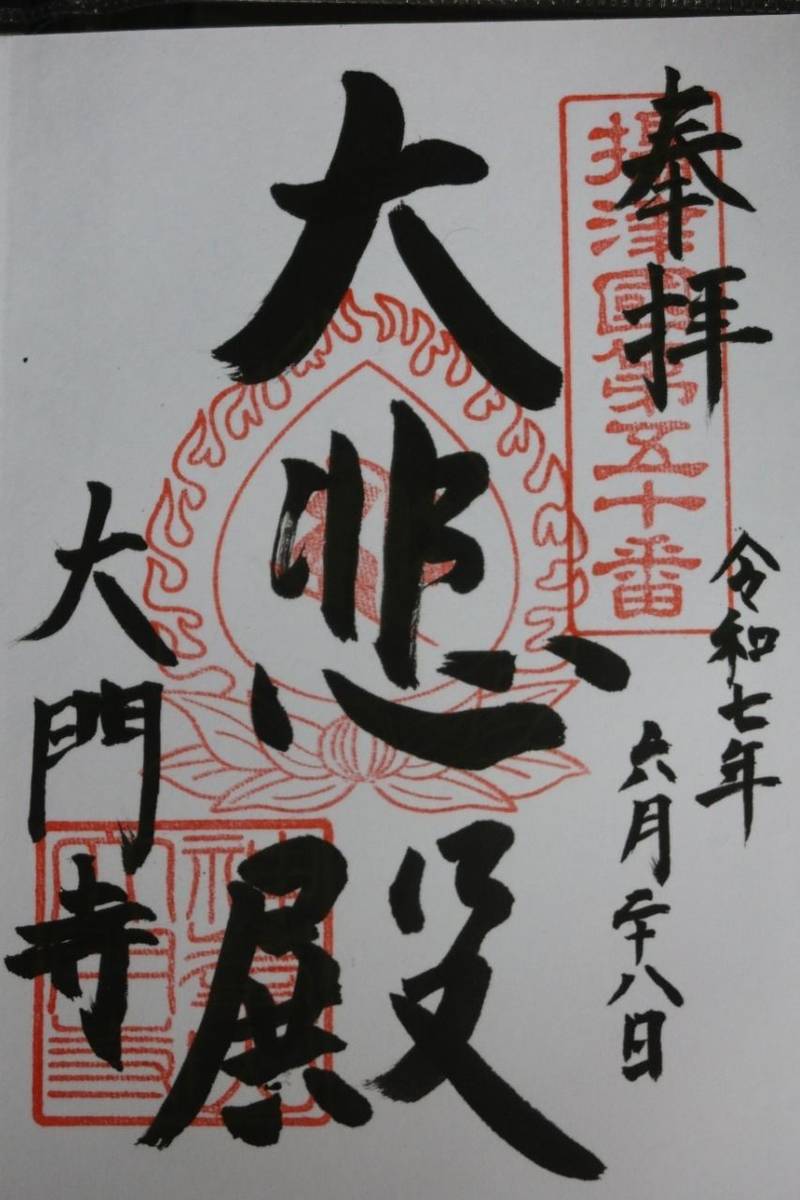 奉拝
攝津國第五十番
令和七年
六月二十八日
大悲殿
大門寺